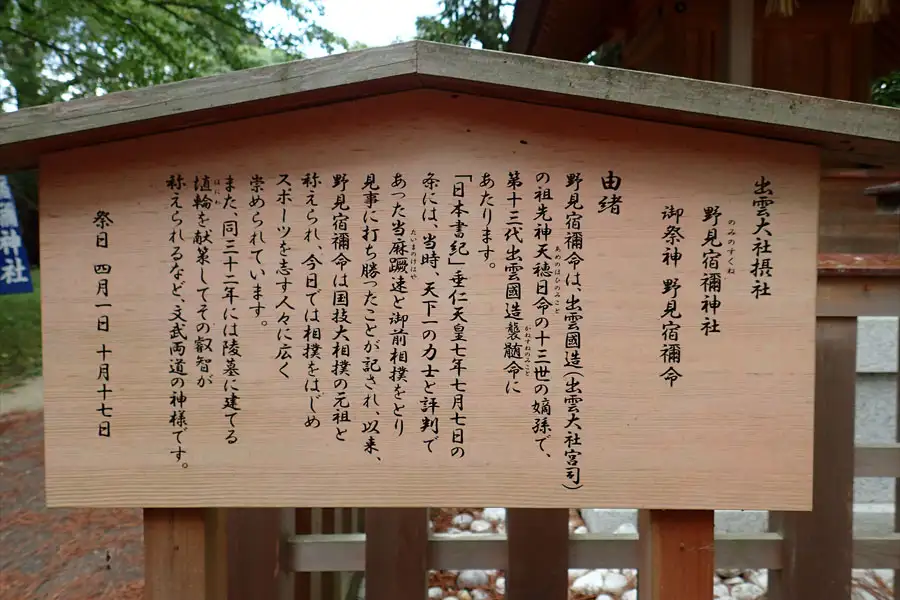 出雲大社摂社
野見宿禰神社
のみのすくね
御祭神 野見宿禰命
由緒
野見宿禰命は、出雲國造(出雲大社宮司)
の祖先神天穂日命の十三世の嫡孫で、
あめのほひのみこと
第十三代出雲國造襲髄命に
かねすねのみこと
あたります。
「日本書紀」垂仁天皇七年七月七日の
条には、当時、天下一の力士と評判で
あった当麻蹶速と御前相撲をとり
たいまのけはや
見事に打ち勝ったことが記され、以来、
野見宿禰命は国技大相撲の元祖と
称えられ、今日では相撲をはじめ
スポーツを志す人々に広く
崇められています。
また、同三十二年には陵墓に建てる
埴輪を献策してその叡智が
はにわ
称えられるなど、文武両道の神様です。
祭日 四月一日 十月十七日
禰神社